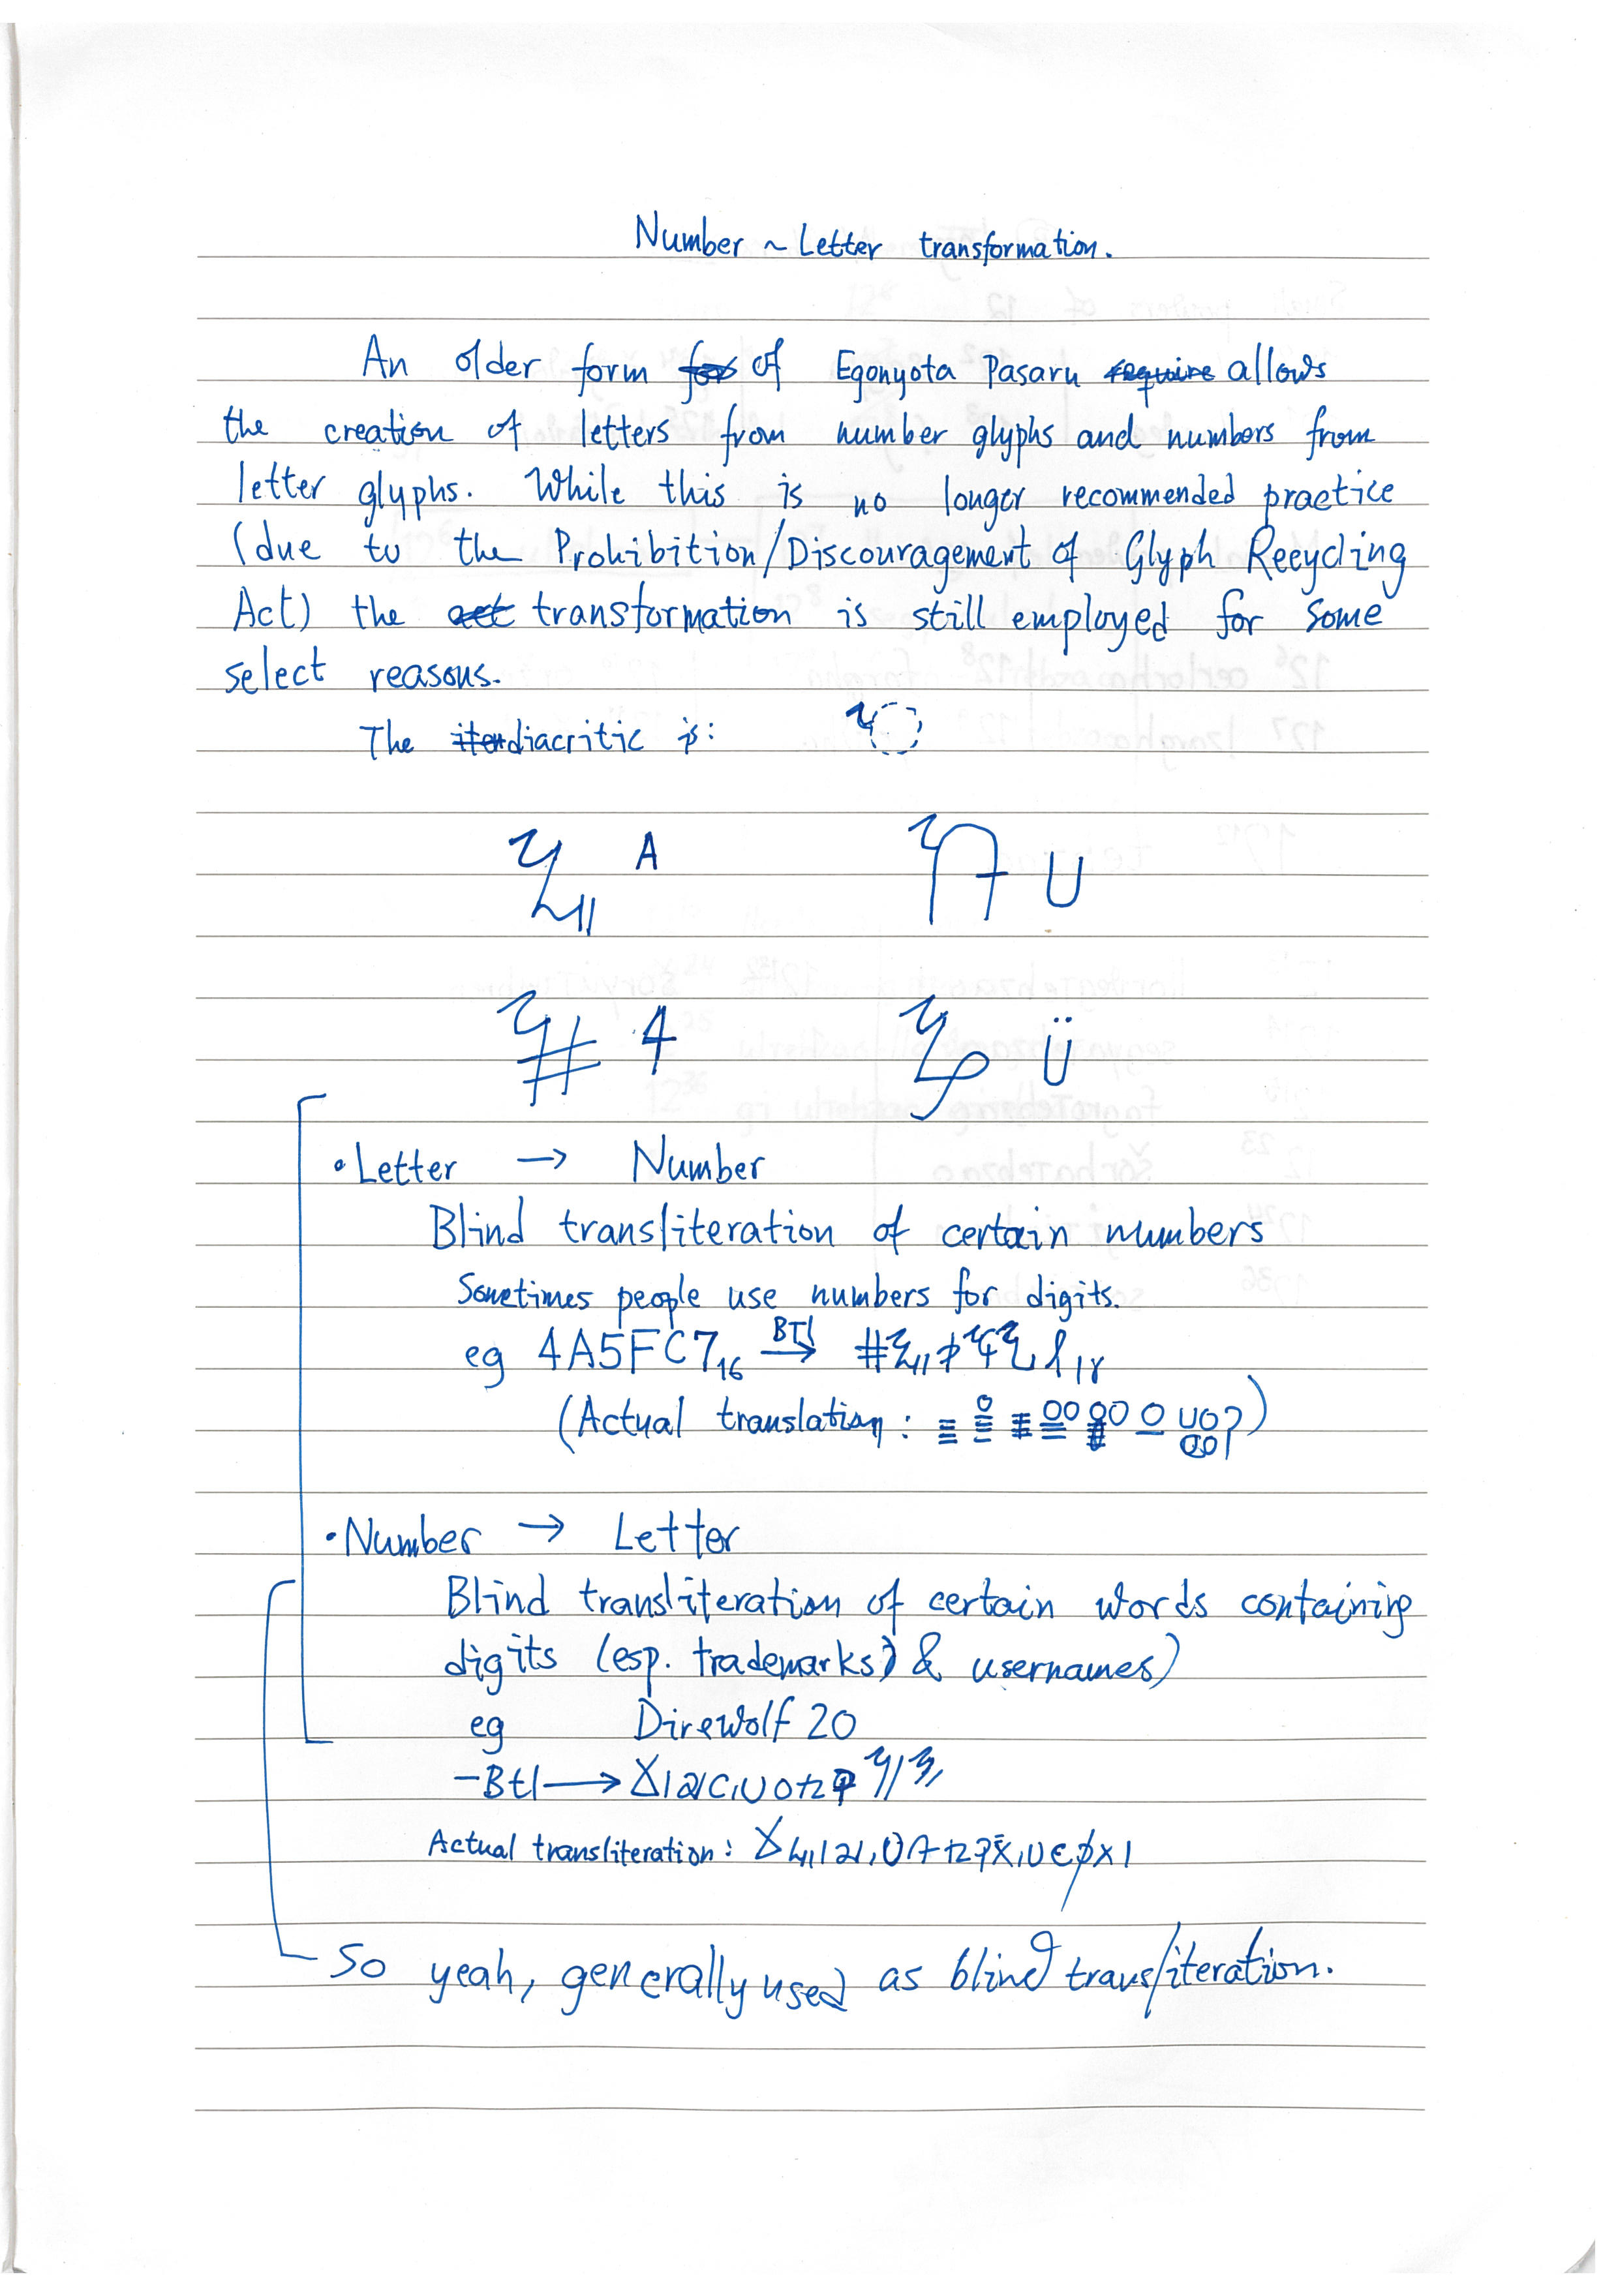 Number ~ Letter transformation.
An older form of Egonyota Pasaru allows
the creation of letters from number glyphs and numbers from
letter glyphs. While this is no longer recommended practice
(due to the Prohibition/Discouragement of Glyph Recycling
Act) the transformation is still employed for some
select reasons.
The diacritic is:
A U
4 Ü
• Letter → Number
Blind transliteration of certain numbers
Sometimes people use numbers for digits.
eg 4A5FC7₁₆ BTl →
(Actual translation: )
• Number → Letter
Blind transliteration of certain words containing
digits (esp. trademarks) & usernames)
eg Direwolf 20
- Btl →
Actual transliteration:
So yeah, generally used as blind transliteration.